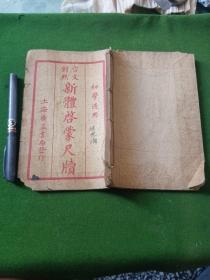 初學適用
言文對照
新體啓蒙尺牘
上海廣益書局發行